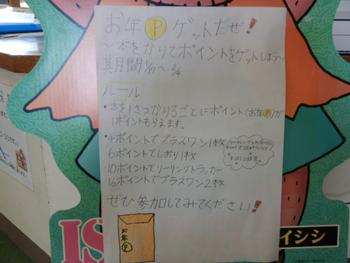 お年Pゲットだぜ!
〜本をかりてポイントをゲットしよう〜
期間1/9〜2/4
ルール
・本を1さつかりるごとにポイント(お年P)が
1ポイントもらえます。
・4ポイントでプラスワン1枚
6ポイントでしおり1枚
10ポイントでリーリングトラッカー
16ポイントでプラスワン2枚
ぜひ参加してみてください!
お年P
IS
イシシ